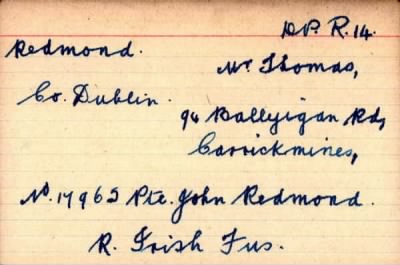 D.P. R. 14.
Redmond.
Mr Thomas,
Co. Dublin.
94 Ballyigan Rd,
Carrickmines,
No. 17965 Pte. John Redmond.
R. Irish Fus.